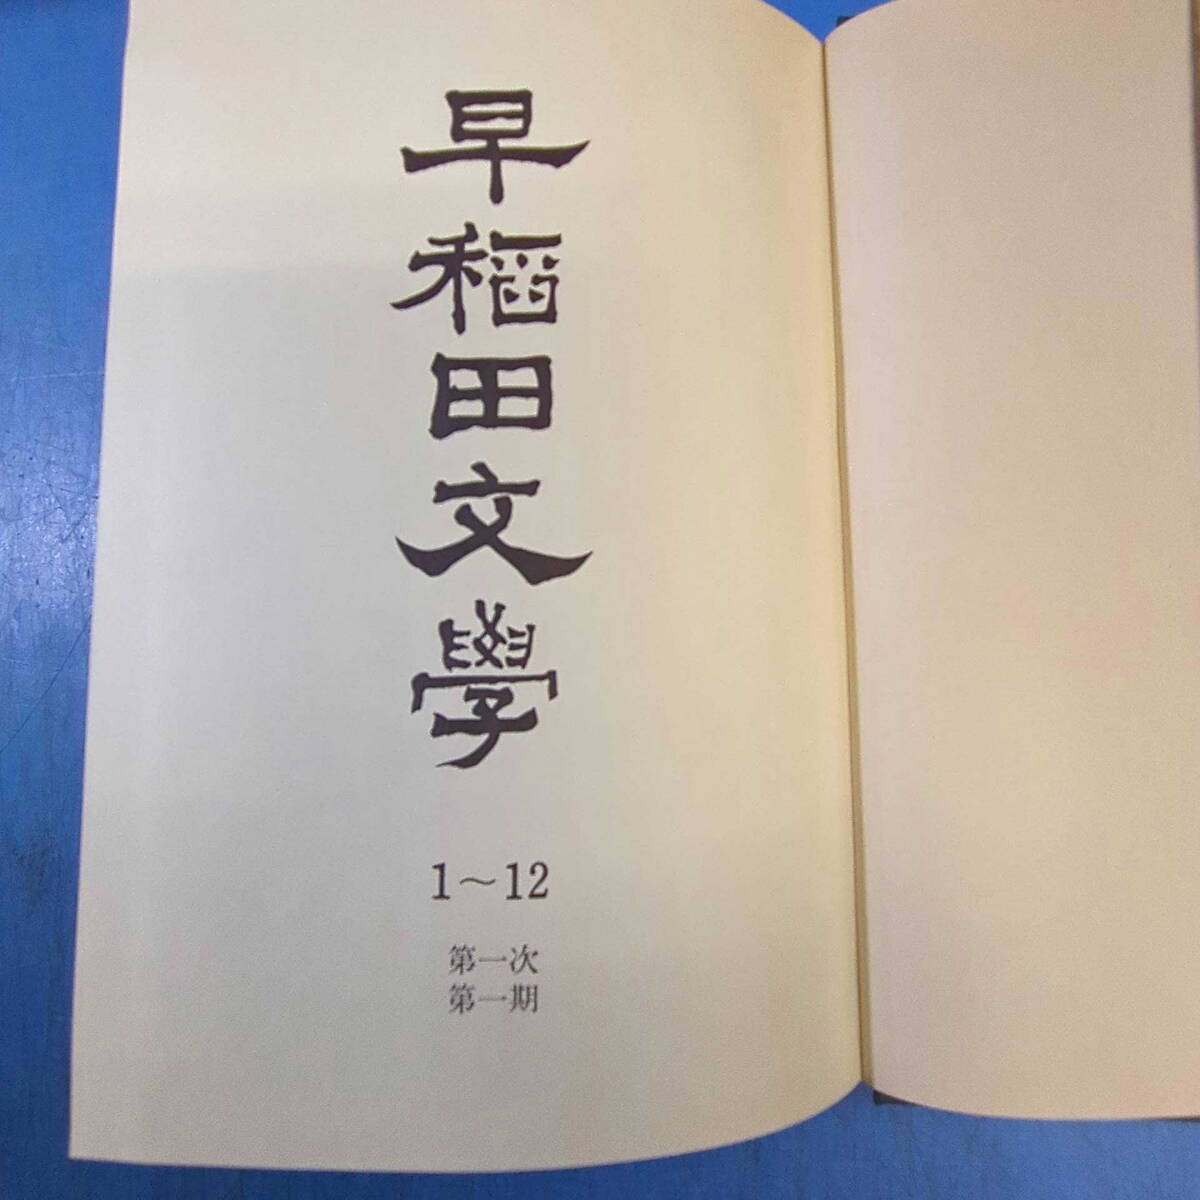 早稲田文學
1～12
第一次
第一期